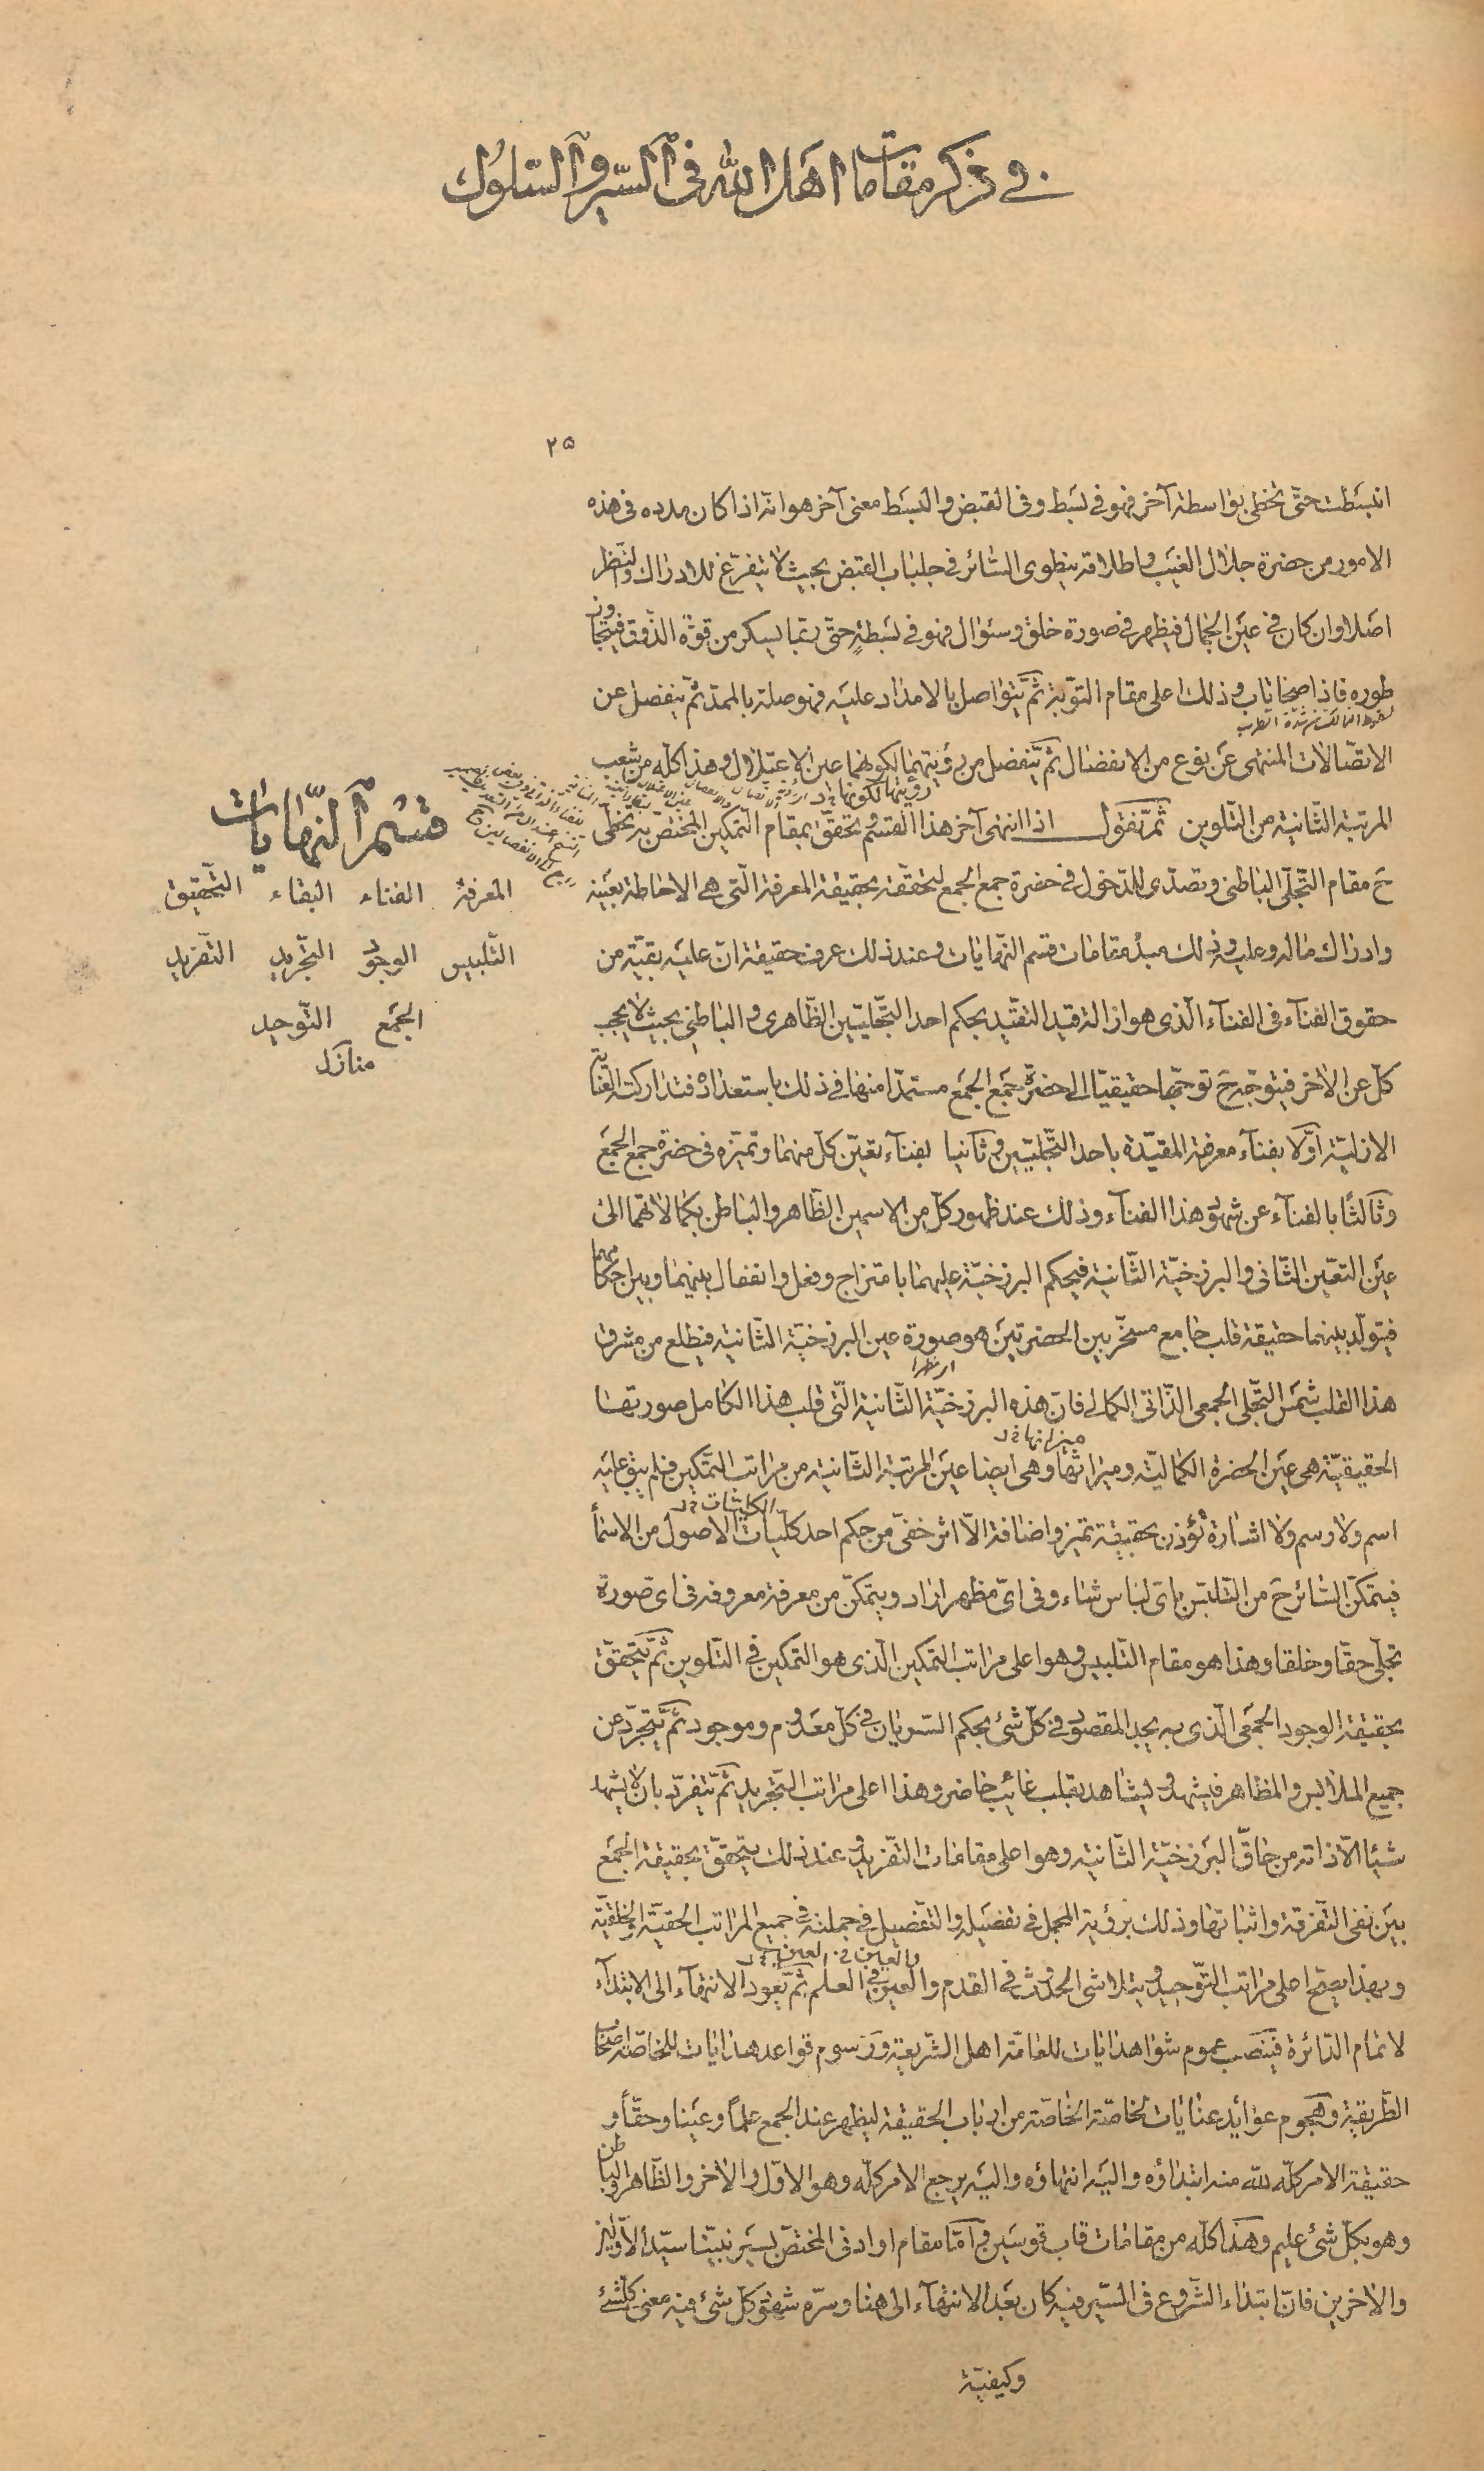 في ذكر مقامات اهل الله فى السير والسلوك
٢٥
انبسطت حتّى تخطى بواسطة آخر فهو في بسط وفى القبض والبسط معنى آخر هو انّه اذا كان مدده فى هذه
الامور من حضرة جلال الغيب واطلاقه ينطوى السّائر في جلباب القبض بحيث لا يتفرّغ للادراك والنّظر
اصلا وان كان في عين الجمال فيظهر في صورة خلق وسؤال فهو في بسطةٍ حتّى ربّما يسكر من قوّة الذّوق فيتجاوز
طوره فاذا صحا تاب وذلك اعلى مقام التّوبة ثمّ يتواصل بالامداد عليه فهو صلة بالممدّ ثمّ ينفصل عن
لسقوط التمالك من شدّة الطرب
الاتّصالات المنتهى عن نوع من الانفصال ثمّ يتفصل من رؤيتهما لكونهما عين الاعتلال وهذا كلّه من شعب
المرتبة الثّانية من التّلوين ثمّ نقول اذا انتهى آخر هذا القسم وتحقّق بمقام التّمكين المختصّ به تخطّى
ح مقام التّجلّى الباطنى وتصدّى للدّخول فى حضرة جمع الجمع لتحقّقه بحقيقة المعرفة الّتى هى الاحاطة بعينه
وادراك ماله وعليه وذلك مبدأ مقامات قسم النّهايات وعند ذلك عرف حقيقة انّ عليه بقيّة من
حقوق الفنآء فى الفنآء الّذى هو ازالة قيد التقيّد بحكم احد التّجلّيين الظّاهرى والباطنى بحيث لا يحجب
كلّ عن الآخر فيتوجّه ح توجّها حقيقيّا الى حضرة جمع الجمع مستمدّا منها فى ذلك باستعداده فتداركته العناية
الازليّة اوّلا بفنآء معرفة المقيّدة باحد التّجلّيين وثانيا بفنآء تعيّن كلّ منهما وتميّزه فى حضرة جمع الجمع
وثالثًا بالفنآء عن شهود هذا الفنآء وذلك عند ظهور كلّ من الاسمين الظّاهر والباطن بكمالاتهما الى
عين التعيّن الثّانى والبرزخيّة الثّانية فيحكم البرزخيّة عليهما بامتزاج وفعل وانفعال بينهما وبين احكامهما
فيتولّد بينهما حقيقة قلب جامع مسخّر بين الحضرتين هو صورة عين البرزخيّة الثّانية فيطلع من مشرق
هذا القلب شمس التّجلّى الجمعى الذّاتى الكمالى فانّ هذه البرزخيّة الثّانية الّتى قلب هذا الكامل صورتها
الحقيقيّة هى عين الحضرة الكماليّة وميراثها وهى ايضا عين المرتبة الثّانية من مراتب التّمكين فلم يبق عليه
اسم ولا وسم ولا اشارة تؤذن بحقيقة تميّز واضافة الّا اثر خفىّ من حكم احد كلّيّات الاصول من الاسمآء
فيتمكّن السّائر ح من التّلبّس باىّ لباس شاء وفى اىّ مظهر اراد ويتمكّن من معرفة معروفه فى اى صورة
تجلّى حقّا وخلقا وهذا هو مقام التّلبيس وهو اعلى مراتب التمكين الّذى هو التّمكين فى التّلوين ثمّ يتحقّق
بحقيقة الوجود الجمعى الّذى به يجد المقصود فى كلّ شئ بحكم السّريان فى كلّ معدوم وموجود ثمّ يتجرّد عن
جميع الملابس والمظاهر فيشهد ويشاهد بقلب غائب حاضر وهذا اعلى مراتب التّجريد ثمّ يتفرّد بان لا يشهد
شيئا الّا ذاته من حاقّ البرزخيّة الثّانية وهو اعلى مقامات التّفريد وعند ذلك يتحقّق بحقيقة الجمع
بين نفى التّفرقة واثباتها وذلك برؤية المجمل فى تفصيله والتّفصيل فى جملته فى جميع المراتب الحقيّة والخلقيّة
وبهذا يصحّ اعلى مراتب التّوحيد ويتلاشى الحدث فى القدم والعين فى العلم ثمّ يعود الانتهآء الى الابتدآء
لاتمام الدّائرة فينصب عموم شواهد ايات للعامّة اهل الشّريعة ورسوم قواعد هدايات للخاصّة اصحاب
الطّريقة وهجوم عوائد عنايات لخاصّة الخاصّة من ارباب الحقيقة ليظهر عند الجمع علمًا وعينا وحقّا و
حقيقة الامر كلّه للّه منه ابتداؤه واليه انتهاؤه واليه يرجع الامر كلّه وهو الاوّل والآخر والظّاهر والباطن
وهو بكلّ شئ عليم وهذا كلّه من مقامات قاب قوسين وامّا مقام او ادنى المختصّ بسير نبيّنا سيّد الاوّلين
والآخرين فانّ ابتداء الشّروع فى السّير فيه كان بعد الانتهآء الى هنا وسرّه شهود كلّ شئ فيه معنى كلّ شئ
وكيفيّة
قسم النّهايات
المعرفة الفناء البقاء التّحقيق
التّلبيس الوجود التّجريد التّفريد
الجمع التّوحيد
منازل